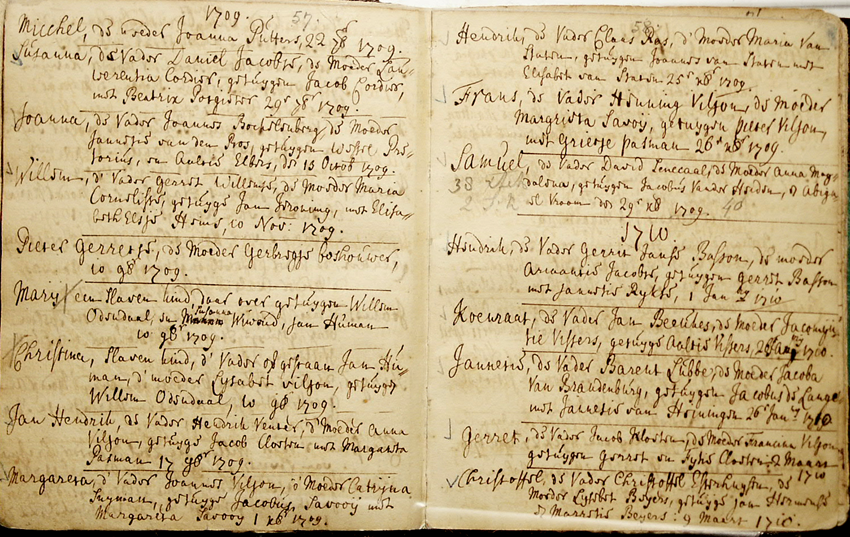 1709. 57.
Micchel, de moeder Joanna Putters, 22 7br 1709.
Susanna, de Vader Daniel Jacobse, de Moeder Lau-
werentia Cordier, getuygen Jacob Cordier,
met Beatrix Potgieter 29e 7br 1709.
Joanna, de Vader Joannes Bockelenberg, de Moeder
Jannetie van den Bos, getuygen Wessel Pre-
torius, en Aeltie Elbers, den 13 Octob 1709.
Willem, d' Vader Gerret Willemse, de Moeder Maria
Cornelisse, getuyge Jan Jeroning, met Elisa-
beth 10 Nov: 1709.
Pieter Gerretse, de Moeder Gerbregje boshouwer,
10 9br 1709.
Mary een slaven kind, daar over getuygen Willem
Odendaal, en Susanna Jan Human
10 9br 1709.
Christina, slaven kind, d' Vader opgestaan Jan Hu-
man, d' moeder Lysabet vilјon, getuyge
Willem Odendaal, 10 9br 1709.
Jan Hendrik, de Vader Hendrik Venter, d' Moeder Anna
Viljon, getuyge Jacob Cloeten met Margareta
Pasman 17 9br 1709.
Margareta, d' Vader Joannes Viljon, d' Moeder Catryna
Snyman, getuyge Jacobus Savooy met
Margareta Savooy 1 xbr 1709.
58.
Hendrik, de Vader Claas Ras, d' Moeder Maria Van
Staten, getuygen Joannes van Staten met
Elisabet van Staten 25e xbr 1709.
Frans, de Vader Henning Viljon, de Moeder
Margrieta Savoy, getuygen pieter Viljon
met Grietje pasman 26e xbr 1709.
Samuel, de Vader David Seneccaal, de Moeder Anna Mag-
38 dalena, getuygen Jacobus Vander Heyden, & Abiga
2 el Vroom den 29e xbr 1709. 40
1710.
Hendrik, de Vader Gerrit Janse Basson, de moeder
Armantie Jacobse, getuygen gerret Basson
met Jannetie 1 Jan 1710
Koenraat, de Vader Jan de Moeder Jacomyn-
tie Vissers, getuyge Aaltie Vissers, 1710.
Jannetie, de Vader Barent Lubbe, de Moeder Jacoba
Van Brandenburg, getuygen Jacobus de Lange
met Jannetie van Heiningen 26e Jan 1710
Gerret, de Vader Jacob Kloeten, de Moeder Francina Viljon
getuygen Gerret en Fytie Cloeten 2 Maart
1710
Christoffel, de Vader Christoffel Esterhuysen, de
Moeder Lysebet Beyers, getuyge Jan Hermense
& Marretie Beyers: 9 Maart 1710.